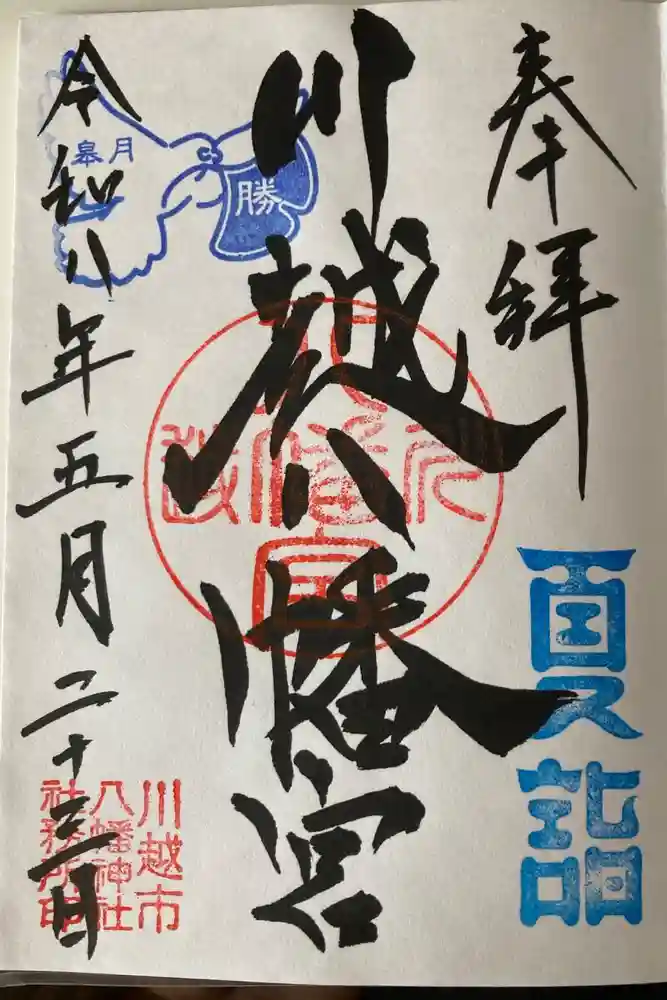 奉拝
夏詣
川越八幡宮
川越八幡宮
勝
皐月
令和八年五月二十三日
川越市
八幡神社
社務所印